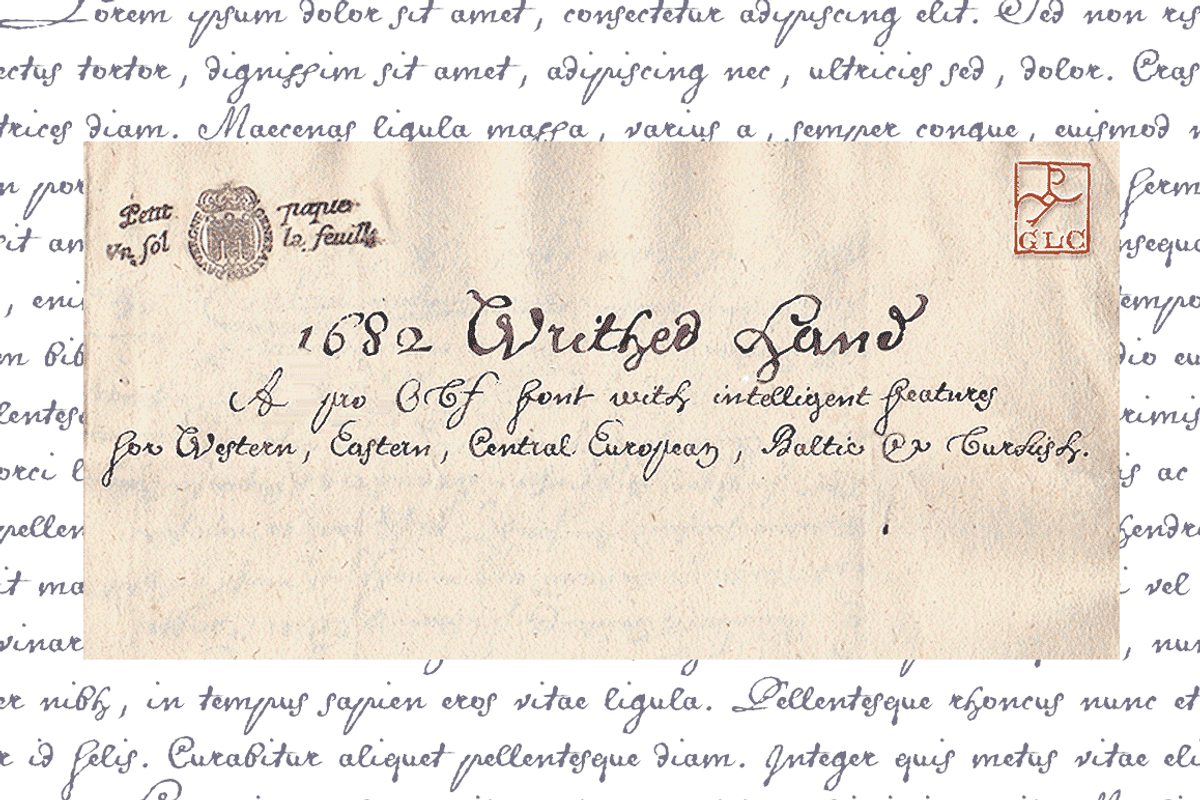 Lorem ipsum dolor sit amet, consectetur adipiscing elit. Sed non ris
ectus tortor, dignissim sit amet, adipiscing nec, ultricies sed, dolor. Cras
trices diam. Maecenas ligula massa, varius a, semper congue, euismod n
n por
ferm
Petit
papier
Vn sol
la feuille
GLC
sit am
nsequa
, eni
tempo
1682 Writhed Hand
m bib
dio eu
A pro OTF font with intelligent features
lentes
rimis
for Western, Eastern, Central European, Baltic & Turkish.
orci l
is ac
pellen
hendre
it ma
i vel
vinar
, nun
er nibh, in tempus sapien eros vitae ligula. Pellentesque rhoncus nunc et
r id felis. Curabitur aliquet pellentesque diam. Integer quis metus vitae eli